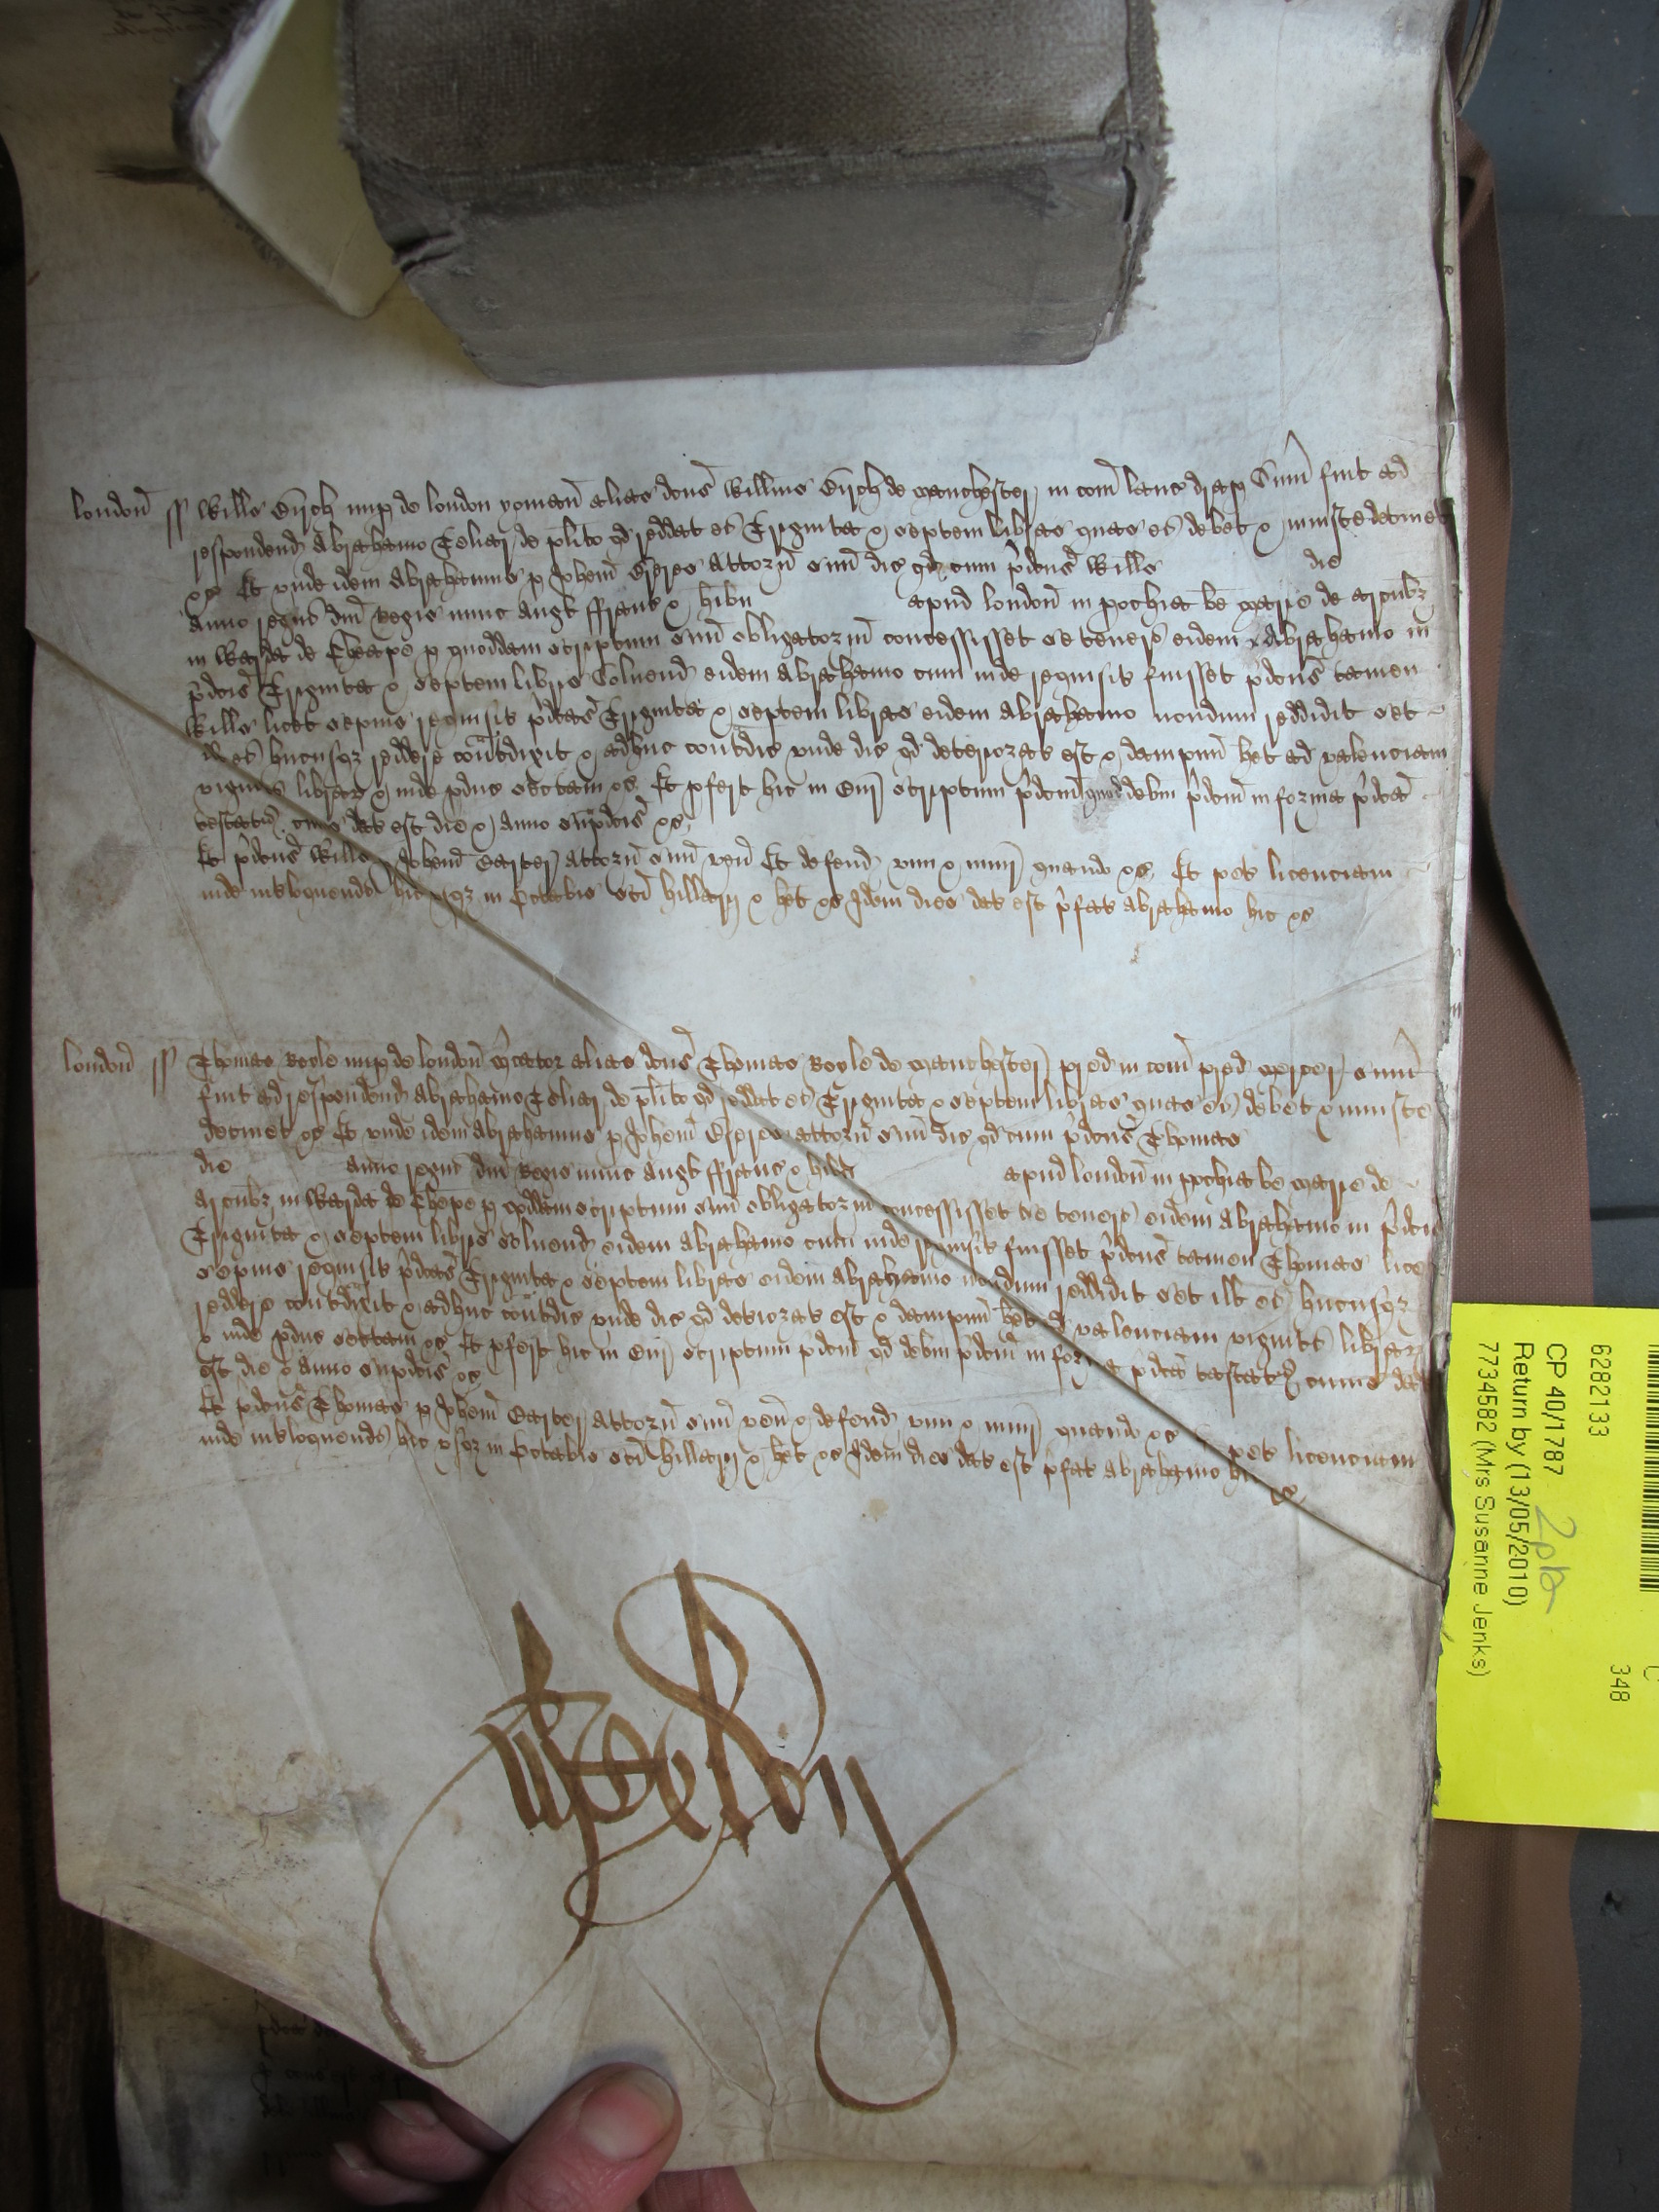 london ss Wills Birch nup de london yoman alias dcus Willms Birch de Manchester in com lanc drap Sum fuit ad
respondend Abrahamo Celiar de plito qd reddat ei Triginta & septem libras quas ei debet & iniuste detinet
&c Et unde idem Abrahamus p Johem attorn suu dic qd cum pdcus Wills die
anno regni dni Regis nunc Angl ffranc & hibn apud london in pochia be marie de arcubz
in Warda de Cheape p quoddam scriptum suu obligatoriu concessisset se teneri eidem Abrahamo in
pdcis Triginta & septem libris Solvend eidem Abrahamo cum inde requisit fuisset pdcus tamen
Wills licet sepius requisit pdcas Triginta & septem libras eidem Abrahamo nondum reddidit set
ill ei hucusqz reddere contdixit & adhuc contdic unde dic qd deteriorat est & dampnu het ad valenciam
viginti librar & inde pduc sectam &c Et pfert hic in Cur scriptum pdcm quod debm pdcm in forma pdca
testatur cuius dat est die & anno supdcis &c
Et pdcus Wills p Johem Carter attorn suu ven Et defend vim & iniur quando &c Et pet licenciam
inde interloquendi hic usqz in Octabis sci hillarij & het &c Idem dies dat est pfat Abrahamo hic &c
london ss Thomas Boyle nup de london mcator alias dcus Thomas Boyle de Manchester pred in com pred mercer sum
fuit ad respondend Abrahamo Celiar de plito qd reddat ei Triginta & septem libras quas ei debet & iniuste
detinet &c Et unde idem Abrahamus p Johem attorn suu dic qd cum pdcus Thomas
die anno regni dni Regis nunc Angl ffranc & hibn apud london in pochia be marie de
arcubz in Warda de Chepe p qoddam scriptum suu obligatoriu concessisset se teneri eidem Abrahamo in pdcis
Triginta & septem libris solvend eidem Abrahamo cum inde requisit fuisset pdcus tamen Thomas licet
sepius requisit pdcas Triginta & septem libras eidem Abrahamo nondum reddidit set ill ei hucusqz
reddere contdixit & adhuc contdic unde dic qd deteriorat est & dampnu het ad valenciam viginti librar
& inde pduc sectam &c Et pfert hic in Cur scriptum pdcm qd debm pdcm in forma pdca testatur cuius dat
est die & anno supdcis &c
Et pdcus Thomas p Johem Carter attorn suu ven & defend vim & iniur quando &c Et pet licenciam
inde interloquendi hic usqz in Octabis sci hillarij & het &c Idem dies dat est pfat Abrahamo hic
&c
6282133
348
CP 40/1787
2pt2
Return by (13/05/2010)
7734582 (Mrs Susanne Jenks)